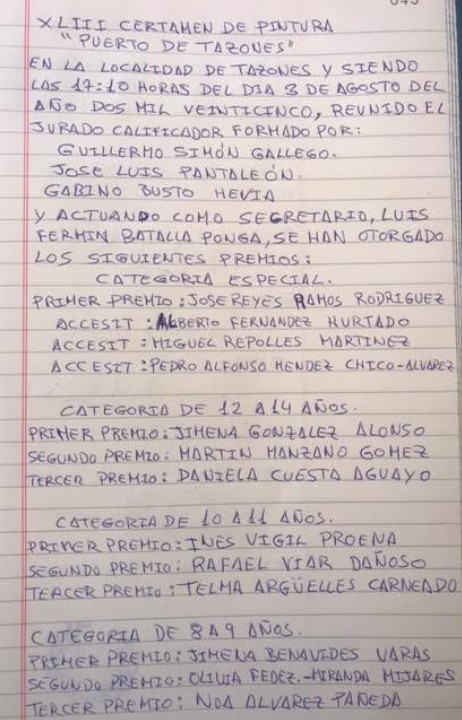 XLIII CERTAMEN DE PINTURA
"PUERTO DE TAZONES"
EN LA LOCALIDAD DE TAZONES Y SIENDO
LAS 17:10 HORAS DEL DIA 3 DE AGOSTO DEL
AÑO DOS MIL VEINTICINCO, REUNIDO EL
JURADO CALIFICADOR FORMADO POR:
GUILLERMO SIMÓN GALLEGO.
JOSE LUIS PANTALEÓN.
GABINO BUSTO HEVIA
Y ACTUANDO COMO SEGRETARIO, LUIS
FERMIN BATALLA PONGA, SE HAN OTORGADO
LOS SIGUIENTES PREMIOS:
CATEGORIA ESPECIAL.
PRIMER PREMIO: JOSE REYES RAMOS RODRIGUEZ
ACCESIT: ALBERTO FERNANDEZ HURTADO
ACCESIT: MIGUEL REPOLLES MARTINEZ
ACCESIT: PEDRO ALFONSO MENDEZ CHICO-ALVAREZ
CATEGORIA DE 12 A 14 AÑOS.
PRIMER PREMIO: JIMENA GONZALEZ ALONSO
SEGUNDO PREMIO: MARTIN MANZANO GOMEZ
TERCER PREMIO: DANIELA CUESTA AGUAYO
CATEGORIA DE 10 A 11 AÑOS.
PRIMER PREMIO: INES VIGIL PROENA
SEGUNDO PREMIO: RAFAEL VIAR DAÑOSO
TERCER PREMIO: TELMA ARGÜELLES CARNEADO
CATEGORIA DE 8 A 9 AÑOS.
PRIMER PREMIO: JIMENA BENAVIDES VARAS
SEGUNDO PREMIO: OLIVIA FEDEZ.-MIRANDA MIJARES
TERCER PREMIO: NOA ALVAREZ PAÑEDA